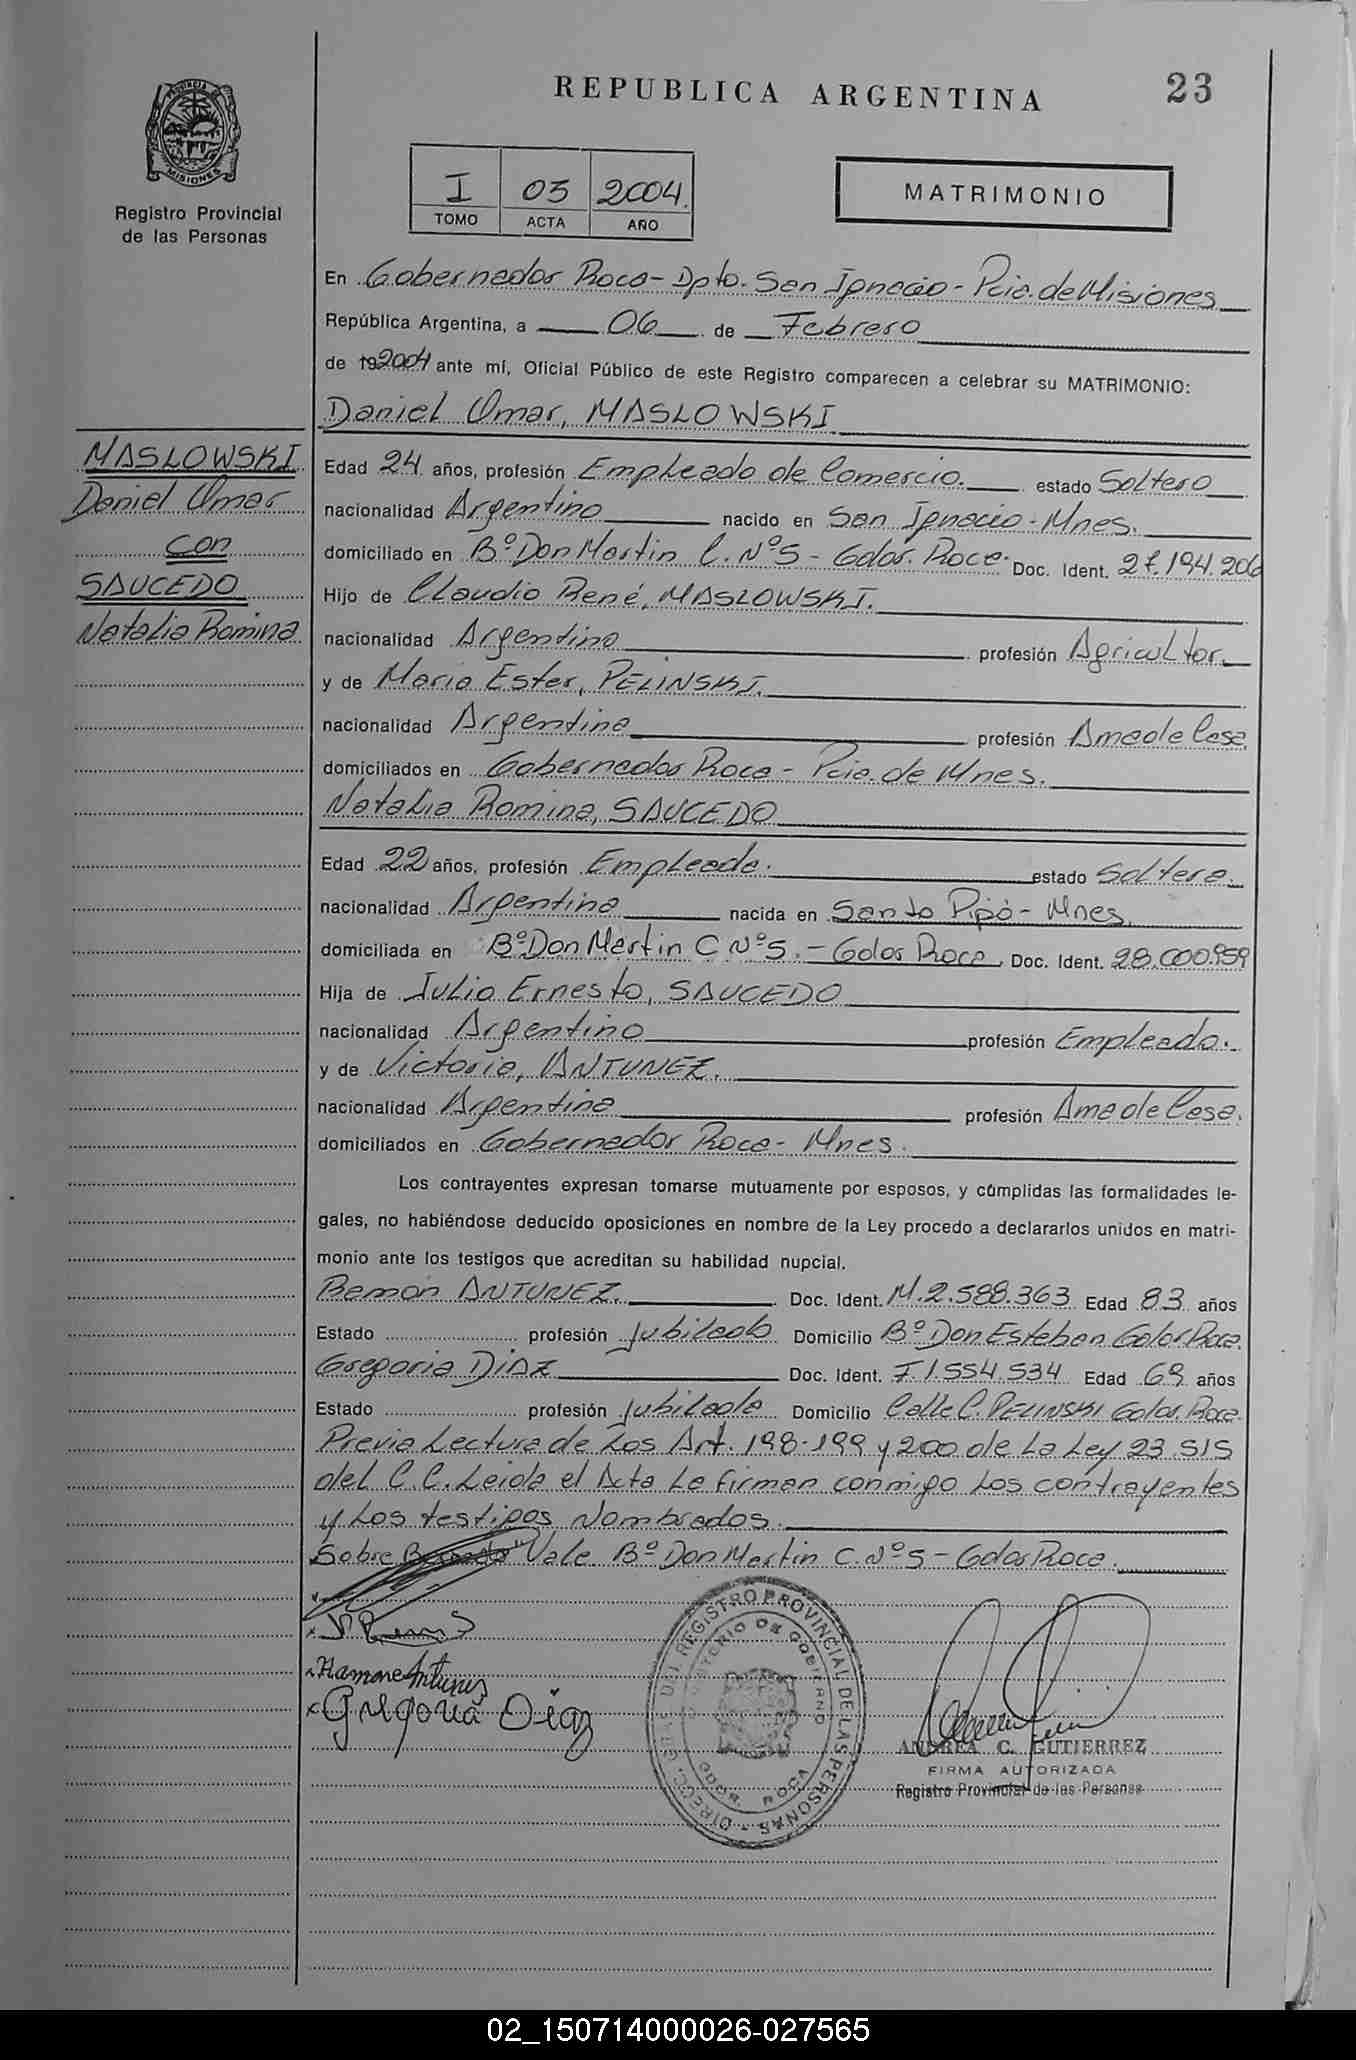 REPUBLICA ARGENTINA
23
PROVINCIA DE
MISIONES
Registro Provincial
de las Personas
I 03 2004.
TOMO ACTA AÑO
MATRIMONIO
En Gobernador Roca - Dpto. San Ignacio - Pcia. de Misiones
República Argentina, a 06 de Febrero
de 192004 ante mí, Oficial Público de este Registro comparecen a celebrar su MATRIMONIO:
Daniel Omar, MASLOWSKI
MASLOWSKI
Daniel Omar
con
SAUCEDO
Natalia Romina
Edad 24 años, profesión Empleado de Comercio. estado Soltero
nacionalidad Argentino nacido en San Ignacio - Mnes.
domiciliado en Bº Don Martin C. Nº 5 - Gdor. Roca. Doc. Ident. 27.194.206
Hijo de Claudio René, MASLOWSKI.
nacionalidad Argentino profesión Agricultor.
y de Maria Ester, PELINSKI.
nacionalidad Argentina profesión Ama de Casa.
domiciliados en Gobernador Roca - Pcia. de Mnes.
Natalia Romina, SAUCEDO
Edad 22 años, profesión Empleada. estado Soltera.
nacionalidad Argentina nacida en Santo Pipó - Mnes.
domiciliada en Bº Don Martin C Nº 5. - Gdor Roca. Doc. Ident. 28.000.959
Hija de Julio Ernesto, SAUCEDO
nacionalidad Argentino profesión Empleado.
y de Victoria, ANTUNEZ.
nacionalidad Argentina profesión Ama de Casa.
domiciliados en Gobernador Roca - Mnes.
Los contrayentes expresan tomarse mutuamente por esposos, y cúmplidas las formalidades le-
gales, no habiéndose deducido oposiciones en nombre de la Ley procedo a declararlos unidos en matri-
monio ante los testigos que acreditan su habilidad nupcial.
Ramón ANTUNEZ. Doc. Ident. M.2.588.363 Edad 83 años
Estado profesión Jubilado Domicilio Bº Don Esteban Gdor Roca.
Gregoria DIAZ Doc. Ident. F.1.554.534 Edad 69 años
Estado profesión Jubilada Domicilio Calle C. PELINSKI Gdor. Roca.
Previa Lectura de Los Art. 198-199 y 200 de La Ley 23.515
del C.C. Leida el Acta La firman conmigo Los contrayentes
y Los testigos Nombrados.
Sobre Borrado" Vale Bº Don Martin C. Nº 5 - Gdor Roca.
Ramon Antunez
Gregoria Diaz
DIREC. GRAL. DEL REGISTRO PROVINCIAL DE LAS PERSONAS
MINISTERIO DE GOBIERNO
GDOR. ROCA
ANDREA C. GUTIERREZ
FIRMA AUTORIZADA
Registro Provincial de las Personas
02_150714000026-027565